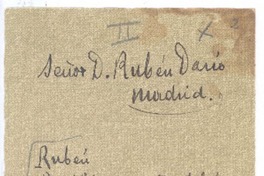 II x
Señor D. Rubén Darío
Madrid.
Rubén